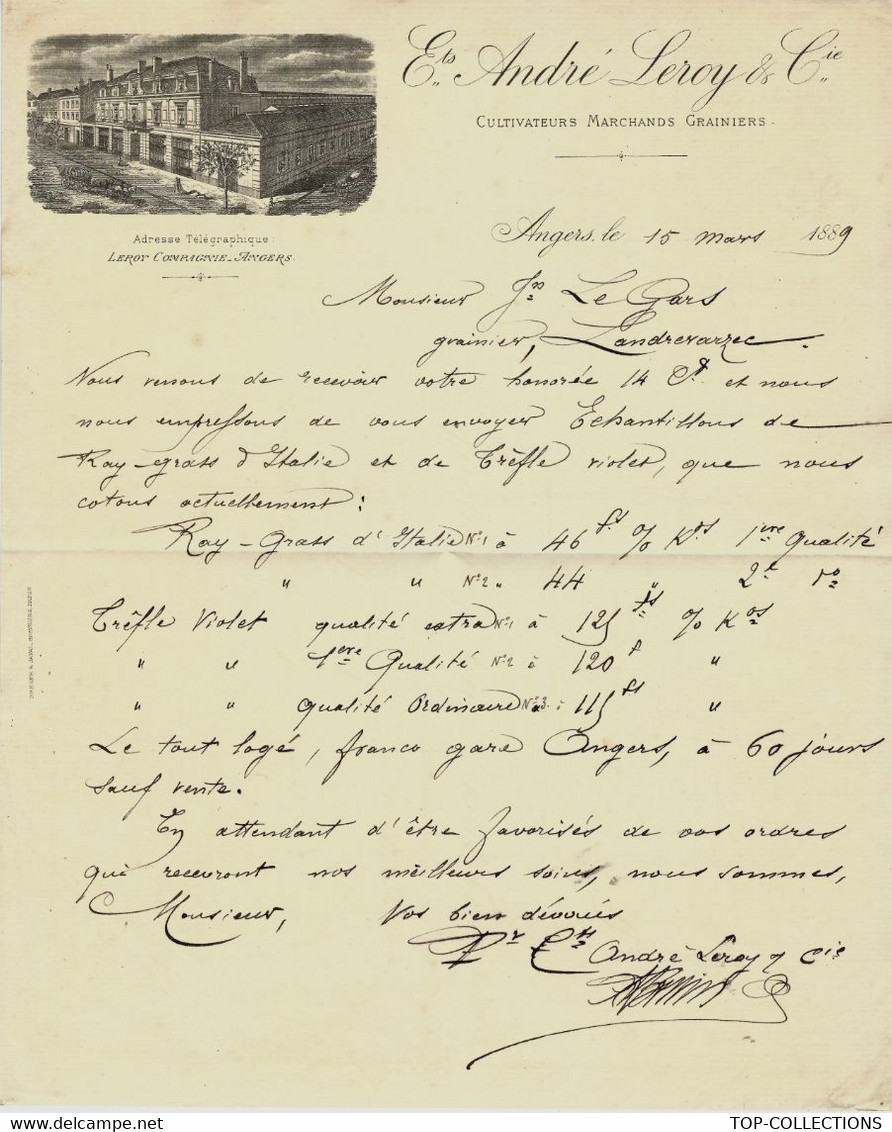 Ets André Leroy & Cie
CULTIVATEURS MARCHANDS GRAINIERS.
Adresse Télégraphique:
LEROY COMPAGNIE_ANGERS.
Angers, le 15 mars 1889
Monsieur Jn Le Gars
grainier, Landrevarzec.
Nous venons de recevoir votre honorée 14 Ct et nous
nous empressons de vous envoyer Echantillons de
Ray-grass d'Italie et de Trêfle violet, que nous
cotons actuellement:
Ray-Grass d'Italie No 1 à 46 fs % Kos 1ère Qualité
" " No 2 " 44 " 2e do
Trêfle Violet qualité extra No 1 à 125 fs % Kos
" " 1ere Qualité No 2 à 120 f "
" " qualité Ordinaire No 3. à 115 fs "
Le tout logé, franco gare Angers, à 60 jours
sauf vente.
En attendant d'être favorisés de vos ordres
qui recevront nos meilleurs soins, nous sommes,
Monsieur, Vos bien dévoués
Pr Ets André Leroy & Cie
TOP-COLLECTIONS